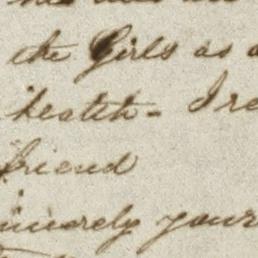 the Girls as
health - I re
friend
incerely your